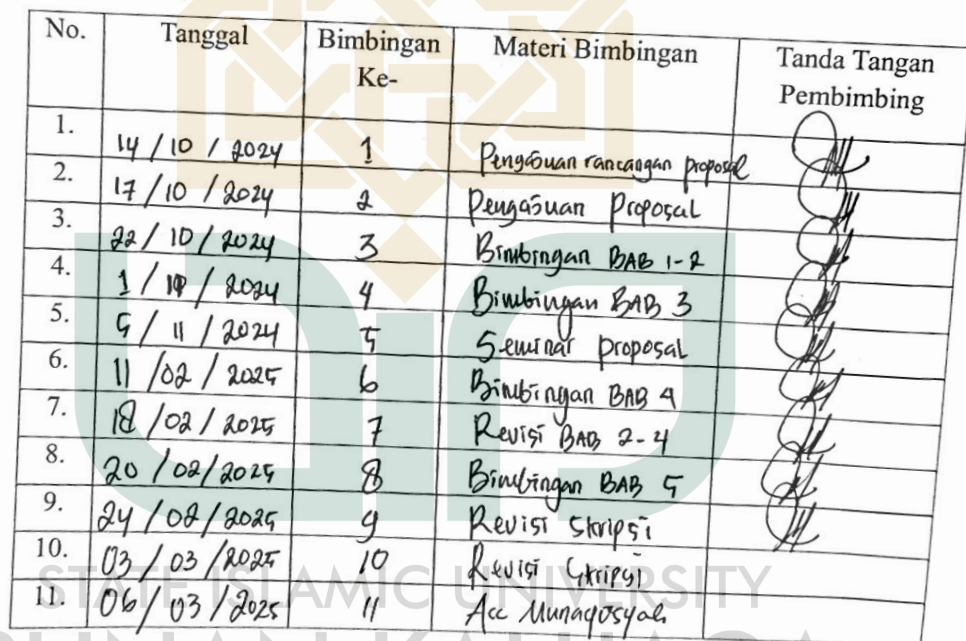 No. Tanggal Bimbingan Ke- Materi Bimbingan Tanda Tangan Pembimbing
1. 14 / 10 / 2024 1 Pengajuan rancangan proposal
2. 17 / 10 / 2024 2 Pengajuan Proposal
3. 22 / 10 / 2024 3 Bimbingan BAB 1-2
4. 1 / 11 / 2024 4 Bimbingan BAB 3
5. 5 / 11 / 2024 5 Seminar proposal
6. 11 / 02 / 2025 6 Bimbingan BAB 4
7. 18 / 02 / 2025 7 Revisi BAB 2-4
8. 20 / 02 / 2025 8 Bimbingan BAB 5
9. 24 / 02 / 2025 9 Revisi Skripsi
10. 03 / 03 / 2025 10 Revisi Skripsi
11. 06 / 03 / 2025 11 Acc Munaqosyah
STATE ISLAMIC UNIVERSITY
SUNAN KALIJAGA